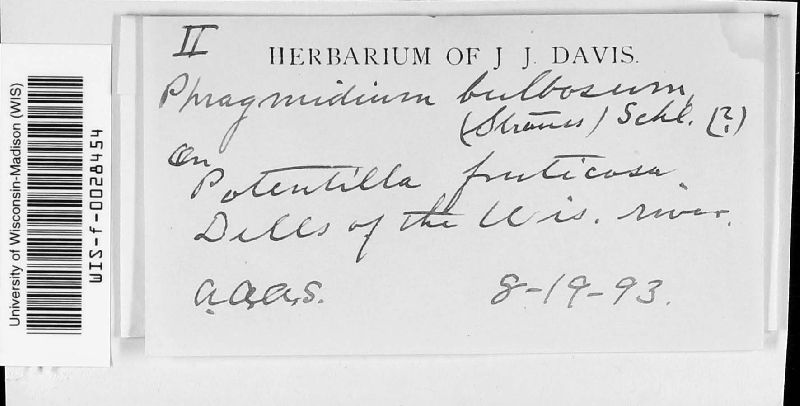 II
HERBARIUM OF J J. DAVIS.
Phragmidium bulbosum,
(Strauss) Schl. (?)
On
Potentilla fruticosa
Dells of the Wis. river.
A.A.A.S. 8-19-93.
University of Wisconsin-Madison (WIS)
WIS-f-0028454